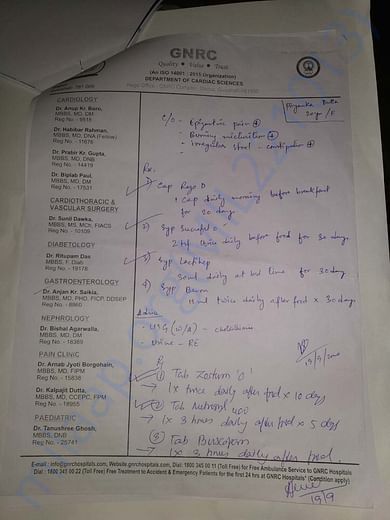 GNRC
Quality • Value • Trust
(An ISO 14001 : 2015 Organization)
DEPARTMENT OF CARDIAC SCIENCES
CARDIOLOGY
Dr. Anup Kr. Baro,
MBBS, MD, DM
Reg No - 9515
Dr. Habibar Rahman,
MBBS, MD, DNA (Fellow)
Reg No - 11676
Dr. Prabir Kr. Gupta,
MBBS, MD, DNB
Reg No - 14419
Dr. Biplab Paul,
MBBS, MD, DM
Reg No - 17531
CARDIOTHORACIC &
VASCULAR SURGERY
Dr. Sunil Dawka,
MBBS, MS, MCh, FIACS
Reg No - 10109
DIABETOLOGY
Dr. Ritupam Das
MBBS, F. Diab
Reg No - 19178
GASTROENTEROLOGY
Dr. Anjan Kr. Saikia,
MBBS, MD, PHD, FICP, DDSEP
Reg No - 8860
NEPHROLOGY
Dr. Bishal Agarwalla,
MBBS, MD, DM
Reg No - 18369
PAIN CLINIC
Dr. Arnab Jyoti Borgohain,
MBBS, MD, FIPM
Reg No - 15838
Dr. Kalpajit Dutta,
MBBS, MD, CCEPC, FPM
Reg No - 18955
PAEDIATRIC
Dr. Tanushree Ghosh,
MBBS, DNB
Reg No - 25741
Priyanka Dutta
20yr/F
C/O - Epigastric pain +
- Burning micturition +
- irregular stool - constipation +
Rx.
1) Cap Rojo D
1 cap daily morning before breakfast
for 20 days
2) Syp Sucrafil O
2 tsf thrice daily before food for 30 days
3) Syp Lactihep
30ml daily at bed time for 30 days
4) Syp
15 ml twice daily after food x 30 days
Advice
- USG (W/A) -
- Urine - RE
19/9/
(1) Tab Zostum 'O'
→ 1x twice daily after food x 10 days
(2) Tab 400
→ 1x 3 hours daily after food x 5 days
(3) Tab Buscogem
→ 1x 3 hours daily after food.
E-mail : info@gnrchospitals.com, Website.gnrchospitals.com, Dial: 1800 345 00 11 (Toll Free) for Free Ambulance Service to GNRC Hospitals
Dial : 1800 345 00 22 (Toll Free) Free Treatment to Accident & Emergency Patients for the first 24 hrs at GNRC Hospitals* (Condition apply)
19/9